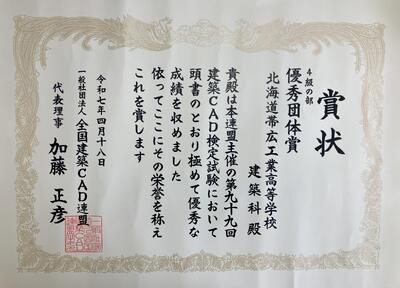 賞状
4級の部
優秀団体賞
北海道帯広工業高等学校
建築科殿
貴殿は本連盟主催の第九十九回
建築CAD検定試験において
頭書のとおり極めて優秀な
成績を収めました
依ってここにその栄誉を称え
これを賞します
令和七年四月十八日
一般社団法人 全国建築CAD連盟
代表理事 加藤 正彦